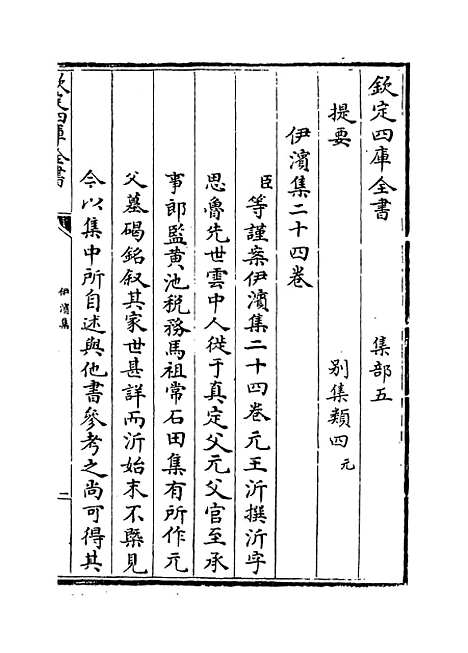 欽定四庫全書 集部五
提要 別集類四 元
伊濱集二十四卷
臣等謹案伊濱集二十四卷元王沂撰沂字
思魯先世雲中人徙于真定父元父官至承
事郎監黄池税務馬祖常石田集有所作元
父墓碣銘叙其家世甚詳而沂始末不槩見
今以集中所自述與他書參考之尚可得其
欽定四庫全書
伊濱集